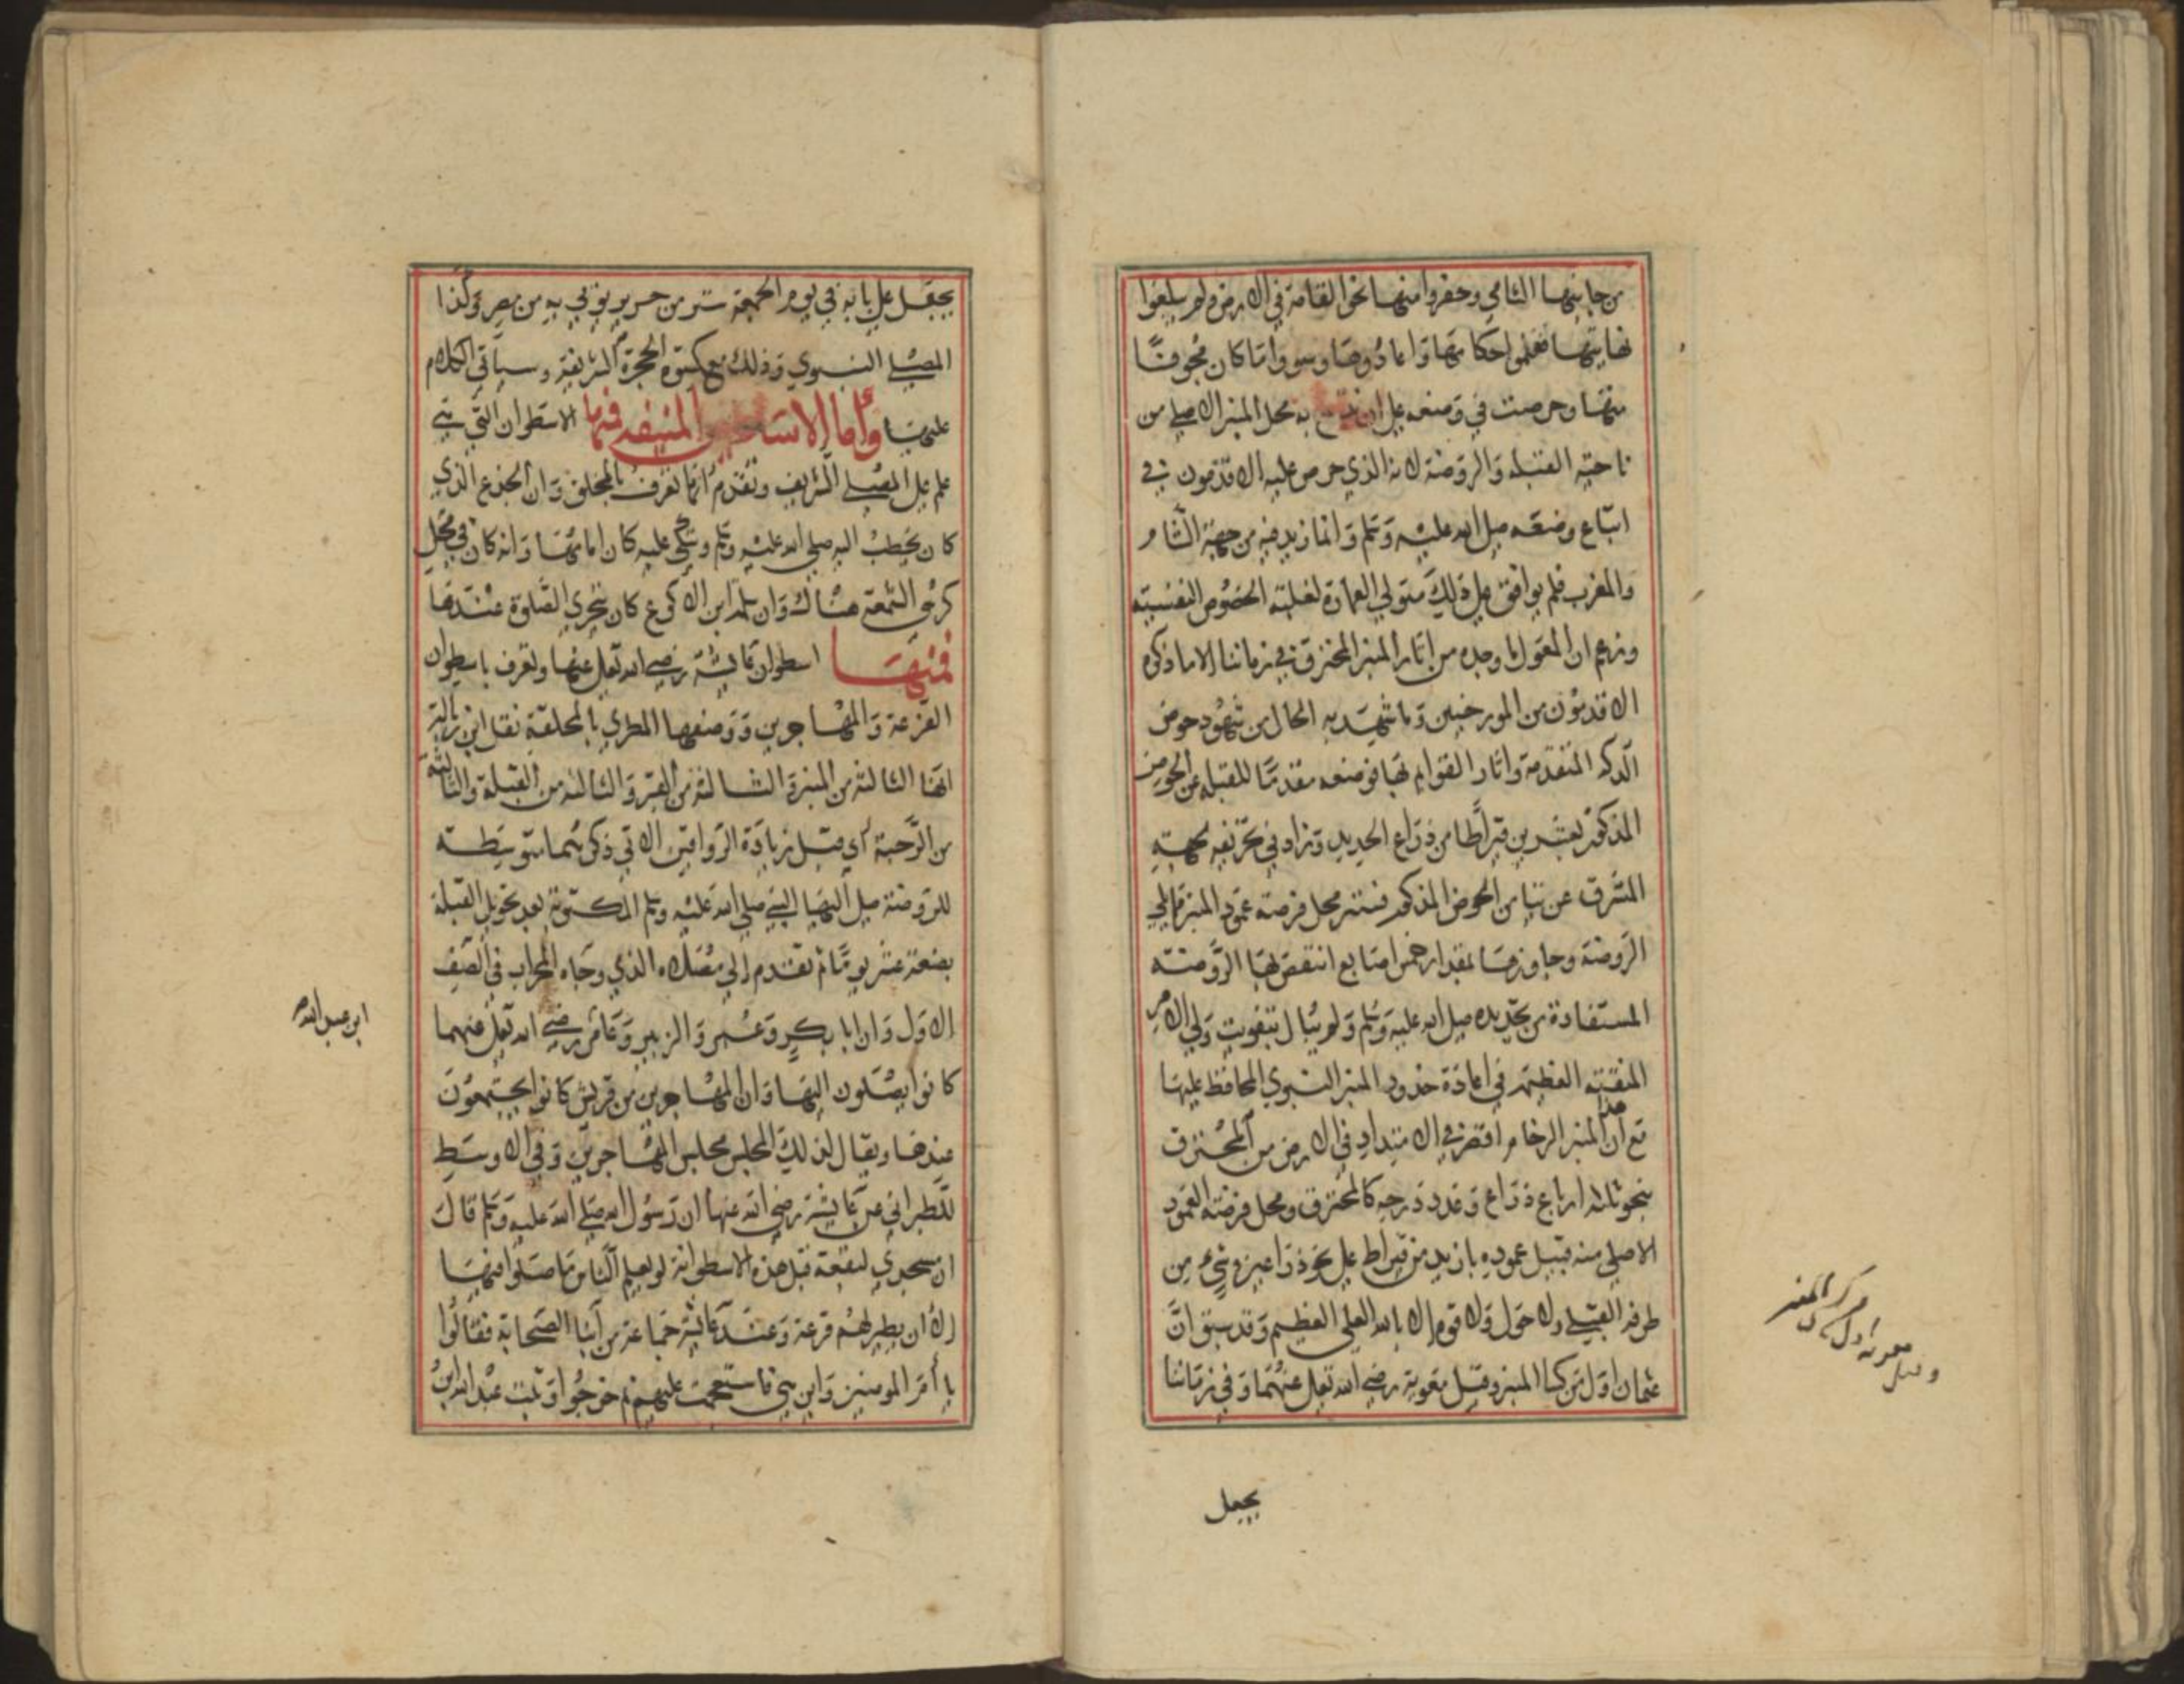 من جانبها الشامي وحفروا منها نحو القامة في الارض ولم يبلغوا
نهايتها فعلموا احكامها واعادوها وسووا ما كان مجوفا
منها وحرصت في وضعه على ان به محل المنبر الاصلي من
ناحية القبلة والروضة لانه الذي حرص عليه الاقدمون في
اتباع وضعه صلى الله عليه وسلم وانما زيد فيه من جهة الشام
والمغرب فلم يوافق على ذلك متولي العمارة لغلبة الحضوض النفسية
وزعم ان المعول ما وجده من اثار المنبر المحترق في زماننا لا ما ذكره
الاقدمون من المورخين وما شهد به الحال من شهود حوض
الدكة المتقدمة واثار القوايم بها فوضعه مقدما للقبلة عن الحوض
المذكور بعشرين قيراطا من ذراع الحديد وزاد في تحريفه لجهة
المشرق عن تيامن الحوض المذكور فستر محل فرضة عمود المنبر مما يلي
الروضة وجاوزها بمقدار خمس اصابع انتقص بها الروضة
المستفادة من تحديده صلى الله عليه وسلم ولم يبال بتفويت ولي الامر
المنقبة العظيمة في اعادة حدود المنبر النبوي المحافظ عليها
مع ان هذا المنبر الرخام اقصر في الامتداد في الارض من المحترق
بنحو ثلثة ارباع ذراع وعدد درجه كالمحترق ومحل فرضة العمود
الاصلي منه قبيل عموده بازيد من قيراط على نحو ذراعين وشيء من
طرفه القبلي ولا حول ولا قوة الا بالله العلي العظيم وقد سبق ان
عثمان اول من كسا المنبر وقيل معوية رضي الله تعلى عنهما وفي زماننا
وقيل معوية اول من كسى المنبر
يجعل
يجعل على بابه في يوم الجمعة ستر من حرير يوتى به من مصر وكذا
المصلى النبوي وذلك مع كسوة الحجرة الشريفة وسياتي الكلام
عليها واما الاساطين المنيفة فمنها الاسطوان التي هي
علم على المصلى الشريف وتقدم انها تعرف بالمخلق وان الجذع الذي
كان يخطب اليه صلى الله عليه وسلم ويتكي عليه كان امامها وانه كان في محل
كرسي الشمعة هناك وان سلمة ابن الاكوع كان يتحرى الصلوة عندها
فمنها اسطوان عايشة رضي الله تعلى عنها وتعرف باسطوان
القرعة والمهاجرين ووصفها المطري بالمخلقة نقل ابن زبالة
انها الثالثة من المنبر والثالثة من القبر والثالثة من القبلة والثالثة
من الرحبة اي قبل زيادة الرواقين الاتي ذكرهما متوسطة
للروضة صلى اليها النبي صلى الله عليه وسلم المكتوبة بعد تحويل القبلة
بضعة عشر يوما ثم تقدم الى مصلاه الذي وجاه المحراب في الصف
الاول وان ابا بكر وعمر والزبير وعامر رضي الله تعلى عنهما
ابن عبد الله
كانوا يصلون اليها وان المهاجرين من قريش كانوا يجتمعون
عندها ويقال لذلك المجلس مجلس المهاجرين وفي الاوسط
للطبراني عن عايشة رضي الله عنها ان رسول الله صلى الله عليه وسلم قال
ان مسجدي لبقعة قبل هذه الاسطوانة لو يعلم الناس ما صلوا فيها
الا ان يطير لهم قرعة وعند عايشة جماعة من ابنا الصحابة فقالوا
يا ام المومنين واين هي فاستعجمت عليهم ثم خرجوا وثبت عبد الله ابن